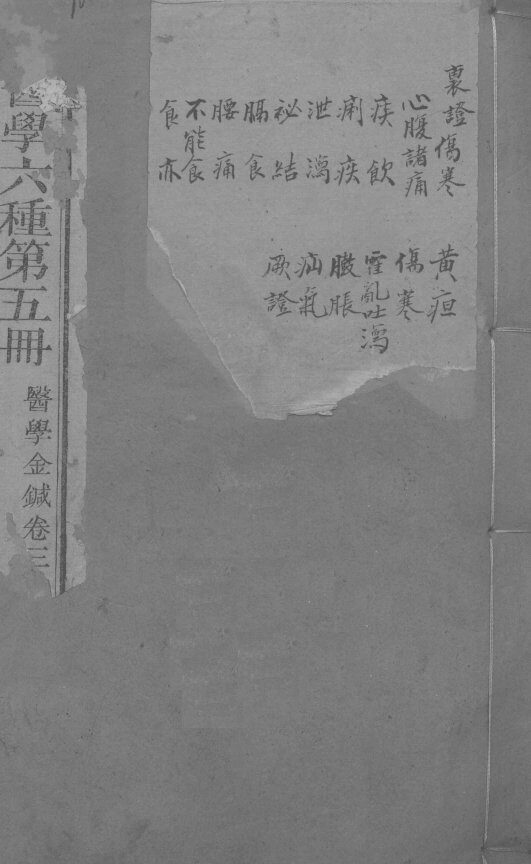 裏證傷寒
心腹諸痛
痰飲
痢疾
泄瀉
祕結
膈食
腰痛
不能食
食亦
黃疸
傷寒
霍亂吐瀉
臌脹
疝氣
厥證
醫學六種第五冊
醫學金鍼卷三